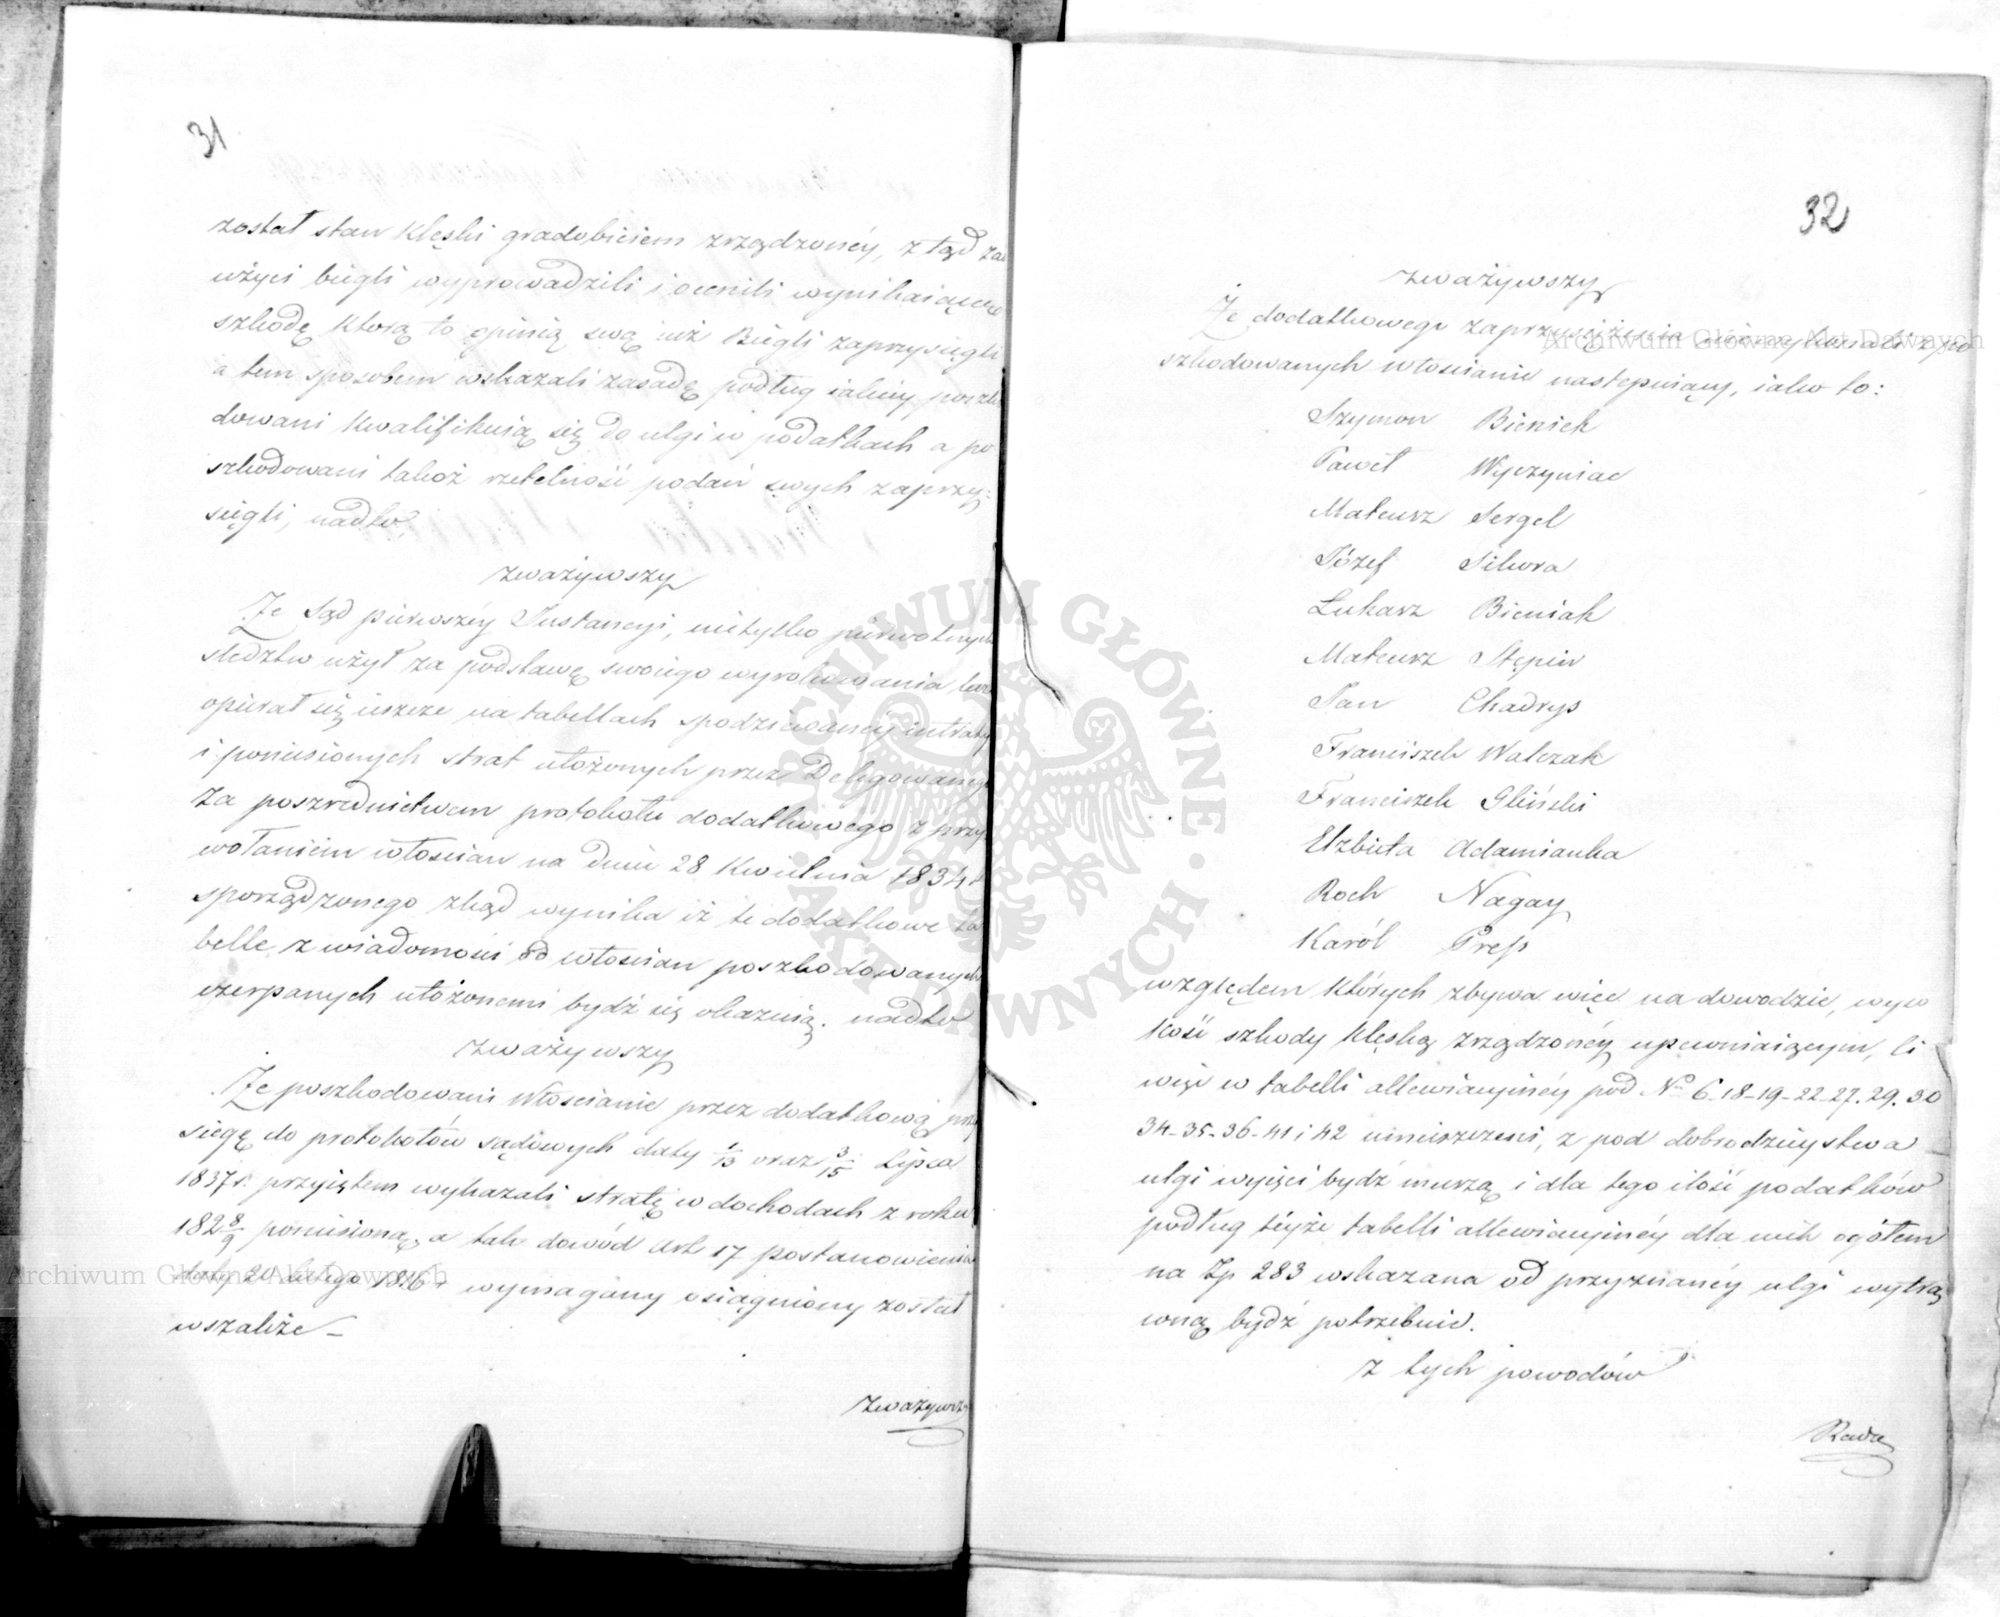 31
został stan klęski gradobiciem zrządzonéy, z tąd zaś
użyci biegli wyprowadzili i ocenili wynikaiącą
szkodę, którą to opinią swą iuż Biegli zaprzysięgli
a tem sposobem wskazali zasadę podług iakiéy poszko
dowani kwalifikuią się do ulgi w podatkach a po
szkodowani takoż rzetelność podań swych zaprzy=
sięgli, nadto
zważywszy
Że Sąd pierwszéy Instancyi, nietylko pierwotnych
śledztw użył za podstawę swoiego wyrokowania lecz
opierał się ieszcze na tabellach spodziewanéy intraty
i poniesionych strat ułożonych przez Delegowanego
za poszrednictwem protokołu dodatkowego z przy
wołaniem włoscian na dniu 28 Kwietnia 1834 r
sporządzonego zkąd wynika iż te dodatkowe ta
belle z wiadomości od włoscian poszkodowanych
czerpanych ułożonemi bydź się okazuią. nadto
zważywszy
Że poszkodowani Włoscianie przez dodatkową przy
sięgę do protokołów sądowych daty 1/13 oraz 3/15 Lipca
1837 r. przyiętem wykazali stratę w dochodach z roku
182 8/9 poniesioną, a tak dowód Art 17 postanowienia
daty 20 lutego 1816 r wymagany osiągniony został
wszakże –
Zważywszy
32
zważywszy
Że dodatkowego zaprzysiężenia nie wykonali z po
szkodowanych włoscianie następuiący, iako to:
Szymon Bieniek
Paweł Wyczyniac
Mateusz Sergel
Józef Sikora
Łukasz Bieniak
Mateusz Stępin
Jan Chadrys
Franciszek Walczak
Franciszek Gliński
Elzbieta Adamianka
Roch Nagay
Karól Preys
względem których zbywa więc na dowodzie, wyso
kość szkody klęską zrządzonéy upewniaiącym, ci
więc w tabelli allewiacyinéy pod No 6-18-19-22-27. 29. 30
34-35-36-41 i 42 umieszczeni, z pod dobrodzieystwa
ulgi wyięci bydź muszą i dla tego ilość podatków
podług téyże tabelli allewiacyinéy dla nich ogółem
na Zp 283 wskazana od przyznanéy ulgi wytrą
coną bydź potrzebuie.
z tych powodów
Rada
Archiwum Główne Akt Dawnych
Archiwum Główne Akt Dawnych
ARCHIWUM GŁÓWNE AKT DAWNYCH